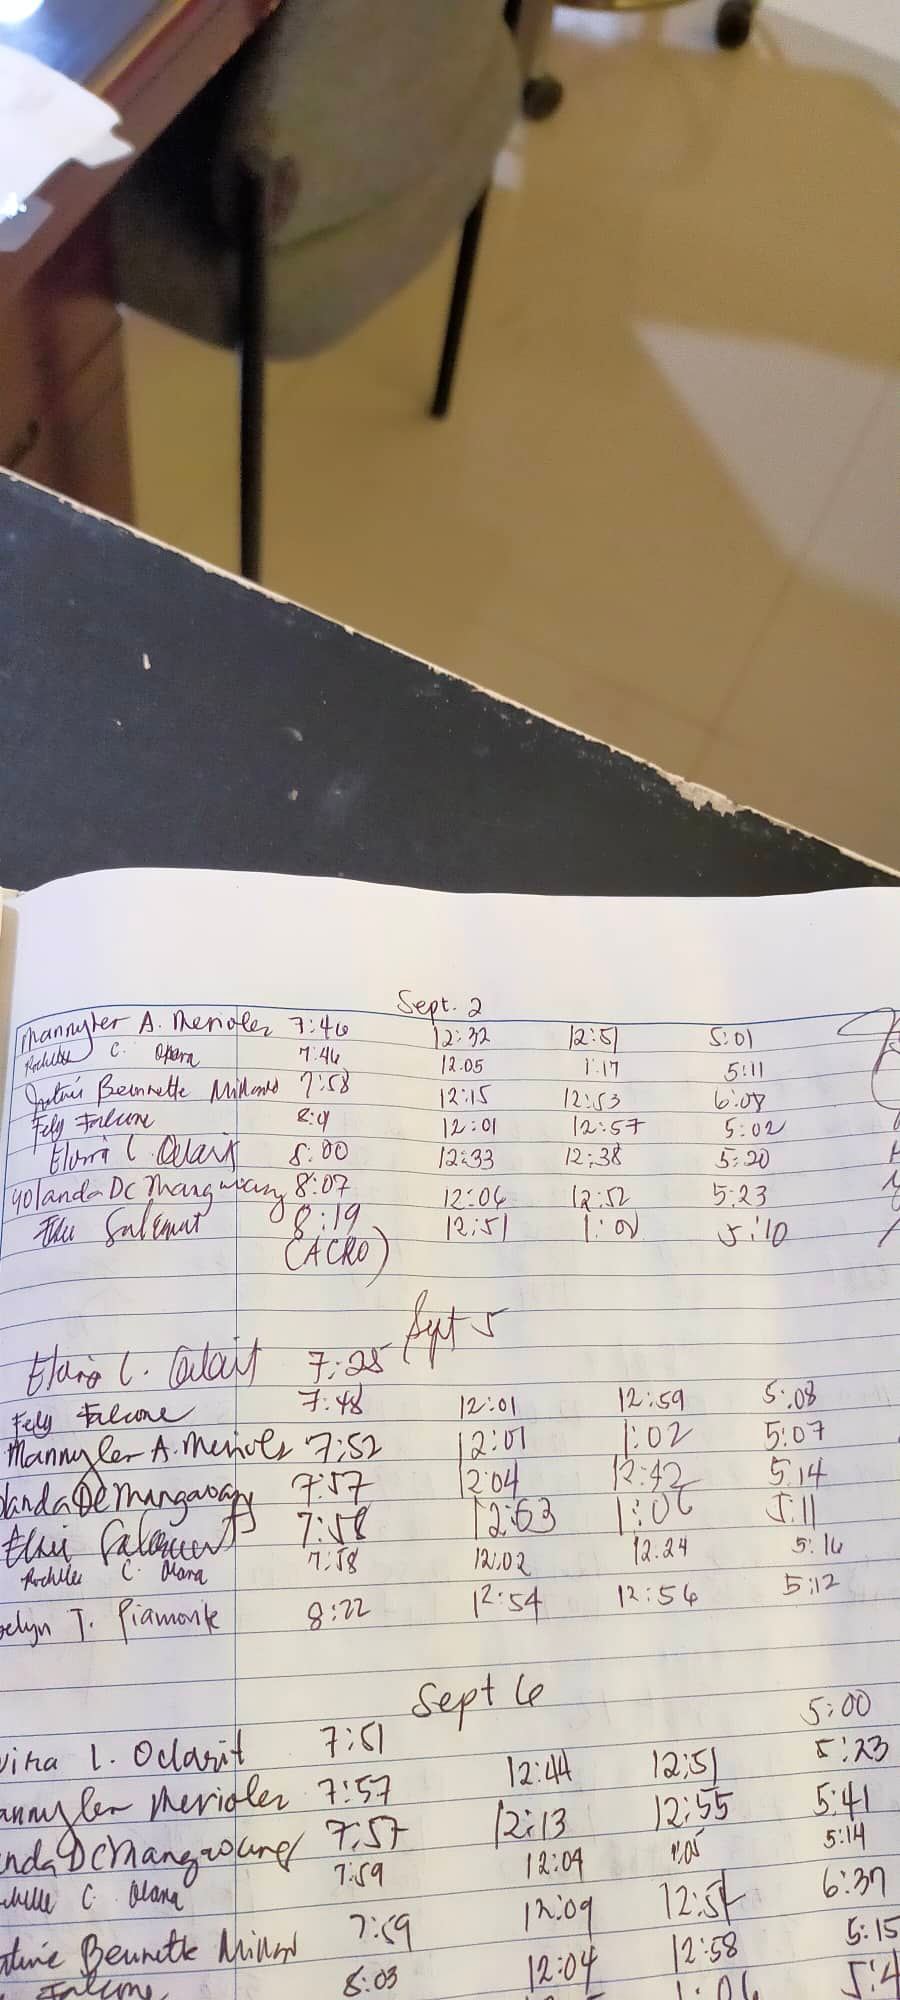 Sept. 2
Mannyler A. Merioles 7:46 12:32 12:51 5:01
C. Olana 7:46 12.05 1:17 5:11
Bennette 7:58 12:15 12:53 6:08
Fely Falcone 12:01 12:57 5:02
Elvira L. Odarit 8:00 12:33 12:38 5:20
Yolanda DC Mangaoang 8:07 12:06 12:52 5:23
8:19 12:51 5:10
(ACRO)
Sept 5
Elvira L. Odarit 7:25
Fely Falcone 7:48 12:01 12:59 5:08
Mannyler A. Merioles 7:52 12:01 1:02 5:07
landa DC Mangaoang 7:57 12:04 12:42 5:14
7:58 12:53 1:06 5:11
C. Olana 7:58 12.02 12.24 5:16
elyn T. Piamonte 8:22 12:54 12:56 5:12
Sept 6
vira L. Odarit 7:51 5:00
annyler Merioles 7:57 12:44 12:51 5:23
nda DC Mangaoang 7:57 12:13 12:55 5:41
chelle C. Olana 7:59 12:09 1:05 5:14
Bennette 7:59 12:09 6:37
Falcone 8:03 12:04 12:58 5:15